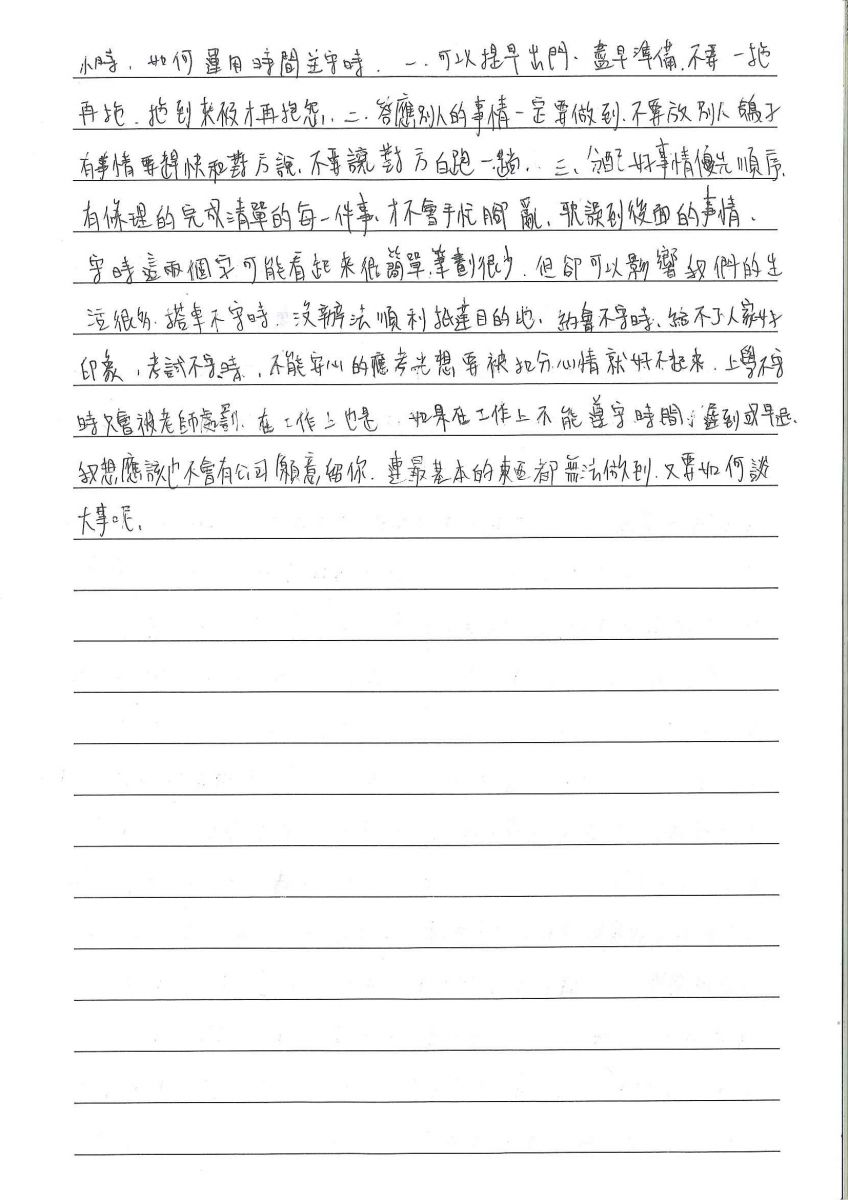 小時，如何運用時間並守時．一．可以提早出門．盡早準備．不要一拖
再拖．拖到來夜才再抱怨．二．答應別人的事情一定要做到．不要放別人鴿子
有事情要趕快和對方說．不要讓對方白跑一趟．三、分配好事情優先順序．
有條理的完成清單的每一件事．才不會手忙腳亂．耽誤到後面的事情．
守時這兩個字可能看起來很簡單．筆劃很少．但卻可以影響我們的生
活很多．搭車不守時．沒辦法順利抵達目的地．約會不守時．給不了人家好
印象．考試不守時．不能安心的應考光想要被扣分心情就好不起來．上學不守
時只會被老師處罰．在工作上也是．如果在工作上不能遵守時間．遲到或早退．
我想應該也不會有公司願意留你．連最基本的東西都無法做到．又要如何談
大事呢．